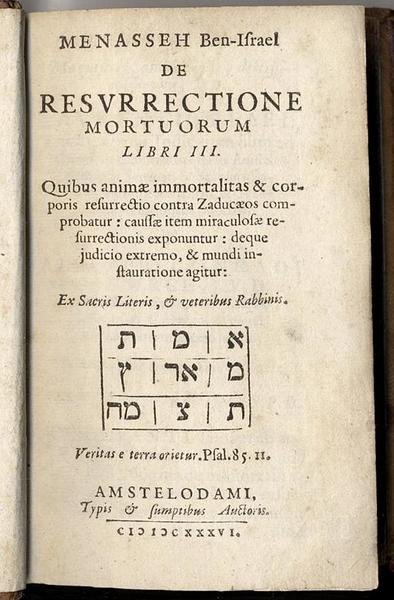 MENASSEH Ben-Iſrael
DE
RESVRRECTIONE
MORTUORUM
LIBRI III.
Quibus animæ immortalitas & cor-
poris reſurrectio contra Zaducæos com-
probatur : cauſſæ item miraculoſæ re-
ſurrectionis exponuntur : deque
judicio extremo, & mundi in-
ſtauratione agitur:
Ex Sacris Literis, & veteribus Rabbinis.
א | מ | ת
מ | אר | ץ
ת | צ | מח
Veritas e terra orietur. Pſal. 85. 11.
AMSTELODAMI,
Typis & ſumptibus Auctoris.
CIƆ IƆCXXXVI.